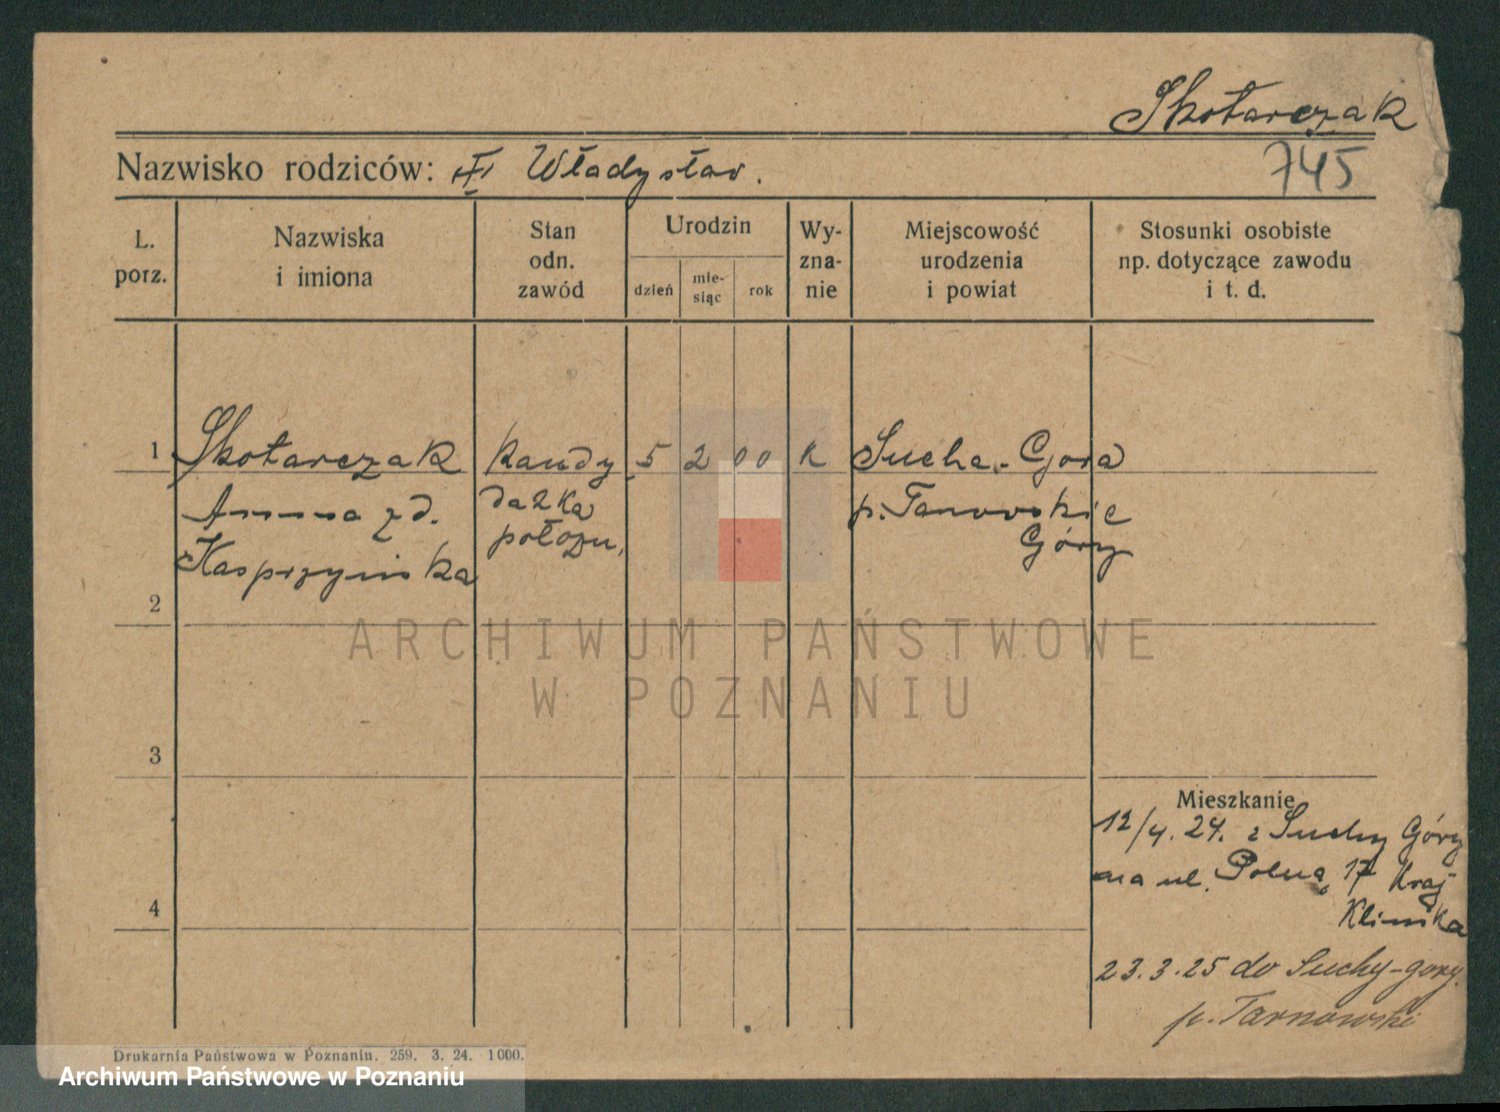 Skotarczak
Nazwisko rodziców: Władysław.
745
L. porz.
Nazwiska i imiona
Stan odn. zawód
Urodzin
dzień
mie-
siąc
rok
Wy-
zna-
nie
Miejscowość urodzenia i powiat
Stosunki osobiste
np. dotyczące zawodu
i t. d.
1 Skotarczak kandy 5 2 00 K Sucha-Gora
Anna zd. datka p. Tarnowskie
Kasprzyinska położn. Góry
2
ARCHIWUM PAŃSTWOWE
W POZNANIU
3
Mieszkanie
12/4. 24. z Suchy Góry
na ul. Polną 17 Kraj
Klinika
4
23.3.25 do Suchy-gory.
p. Tarnowski
Drukarnia Państwowa w Poznaniu. 259. 3. 24. 1000.
Archiwum Państwowe w Poznaniu